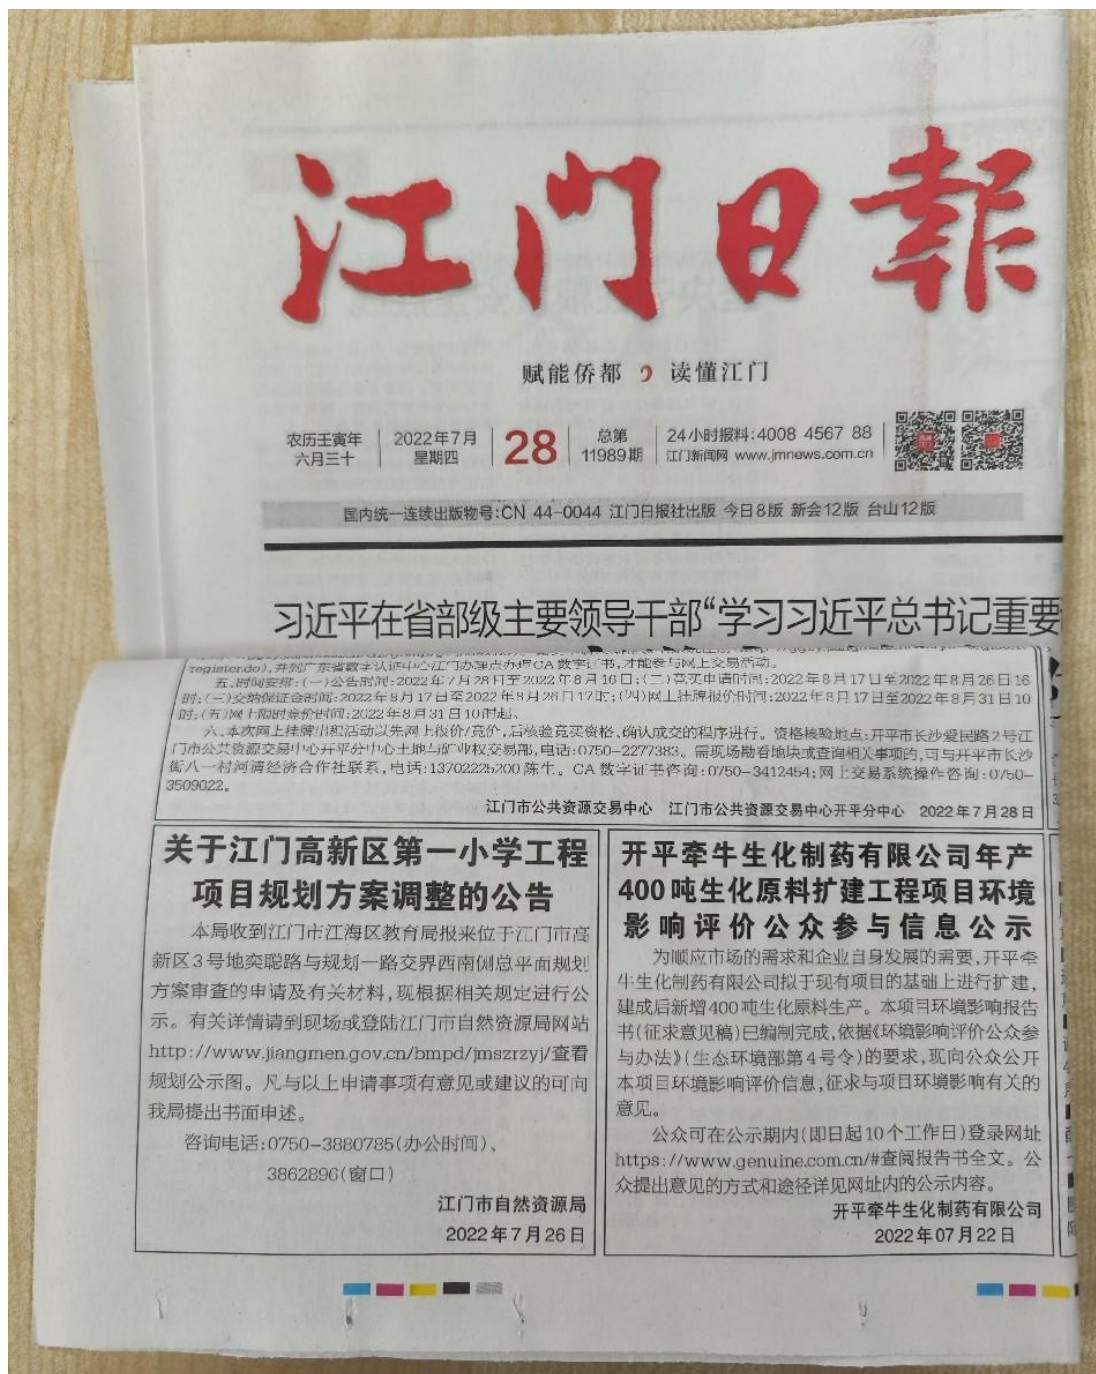 江门日報
赋能侨都 读懂江门
农历壬寅年
六月三十
2022年7月
星期四
28
总第
11989期
24小时报料:4008 4567 88
江门新闻网 www.jmnews.com.cn
国内统一连续出版物号:CN 44-0044 江门日报社出版 今日8版 新会12版 台山12版
习近平在省部级主要领导干部“学习习近平总书记重要
register.do),并到广东省数字认证中心江门办理点办理CA数字证书,才能参与网上交易活动。
五、时间安排:(一)公告时间:2022年7月28日至2022年8月16日;(二)竞买申请时间:2022年8月17日至2022年8月26日16
时;(三)交纳保证金时间:2022年8月17日至2022年8月26日17时;(四)网上挂牌报价时间:2022年8月17日至2022年8月31日10
时;(五)网上限时竞价时间:2022年8月31日10时起。
六、本次网上挂牌出租活动以先网上报价/竞价,后核验竞买资格、确认成交的程序进行。资格核验地点:开平市长沙爱民路2号江
门市公共资源交易中心开平分中心土地与矿业权交易部,电话:0750-2277383。需现场勘看地块或查询相关事项的,可与开平市长沙
街八一村河清经济合作社联系,电话:13702225200陈生。CA数字证书咨询:0750-3412454;网上交易系统操作咨询:0750-
3509022。
江门市公共资源交易中心 江门市公共资源交易中心开平分中心 2022年7月28日
关于江门高新区第一小学工程
项目规划方案调整的公告
本局收到江门市江海区教育局报来位于江门市高
新区3号地奕聪路与规划一路交界西南侧总平面规划
方案审查的申请及有关材料,现根据相关规定进行公
示。有关详情请到现场或登陆江门市自然资源局网站
http://www.jiangmen.gov.cn/bmpd/jmszrzyj/查看
规划公示图。凡与以上申请事项有意见或建议的可向
我局提出书面申述。
咨询电话:0750-3880785(办公时间)、
3862896(窗口)
江门市自然资源局
2022年7月26日
开平牵牛生化制药有限公司年产
400吨生化原料扩建工程项目环境
影响评价公众参与信息公示
为顺应市场的需求和企业自身发展的需要,开平牵
牛生化制药有限公司拟于现有项目的基础上进行扩建,
建成后新增400吨生化原料生产。本项目环境影响报告
书(征求意见稿)已编制完成,依据《环境影响评价公众参
与办法》(生态环境部第4号令)的要求,现向公众公开
本项目环境影响评价信息,征求与项目环境影响有关的
意见。
公众可在公示期内(即日起10个工作日)登录网址
https://www.genuine.com.cn/#查阅报告书全文。公
众提出意见的方式和途径详见网址内的公示内容。
开平牵牛生化制药有限公司
2022年07月22日